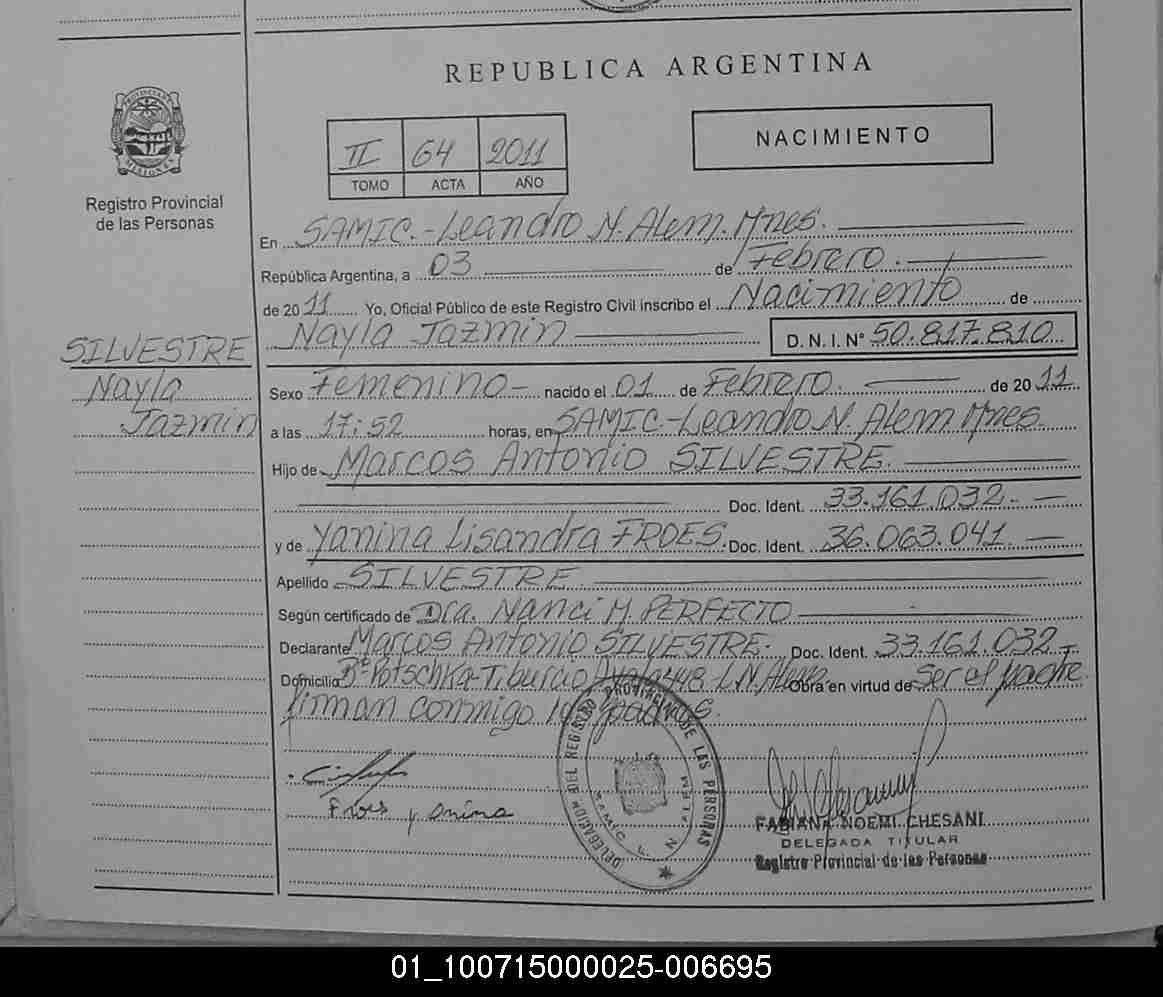 REPUBLICA ARGENTINA
PROVINCIA DE MISIONES
Registro Provincial
de las Personas
II 64 2011
TOMO ACTA AÑO
NACIMIENTO
En SAMIC.-Leandro N. Alem. Mnes.
República Argentina, a 03 de Febrero.
de 2011 Yo, Oficial Público de este Registro Civil inscribo el Nacimiento de
Nayla Jazmin D. N. I. N° 50.817.810
SILVESTRE
Nayla
Jazmin
Sexo Femenino- nacido el 01 de Febrero. de 2011
a las 17:52 horas, en SAMIC-Leandro N. Alem Mnes.
Hijo de Marcos Antonio SILVESTRE.
Doc. Ident. 33.161.032.-
y de Yanina Lisandra FROES. Doc. Ident. 36.063.041.-
Apellido SILVESTRE
Según certificado de Dra. Nanci M. PERFECTO
Declarante Marcos Antonio SILVESTRE- Doc. Ident. 33.161.032-
Domicilio B° Potschka-Tiburcio L.N.Alem. Obra en virtud de Ser el padre
firman conmigo los padres.
Froes yanina
DELEGACION DEL REGISTRO PROVINCIAL DE LAS PERSONAS
SAMIC L. N. ALEM
FABIANA NOEMI CHESANI
DELEGADA TITULAR
Registro Provincial de las Personas
01_100715000025-006695